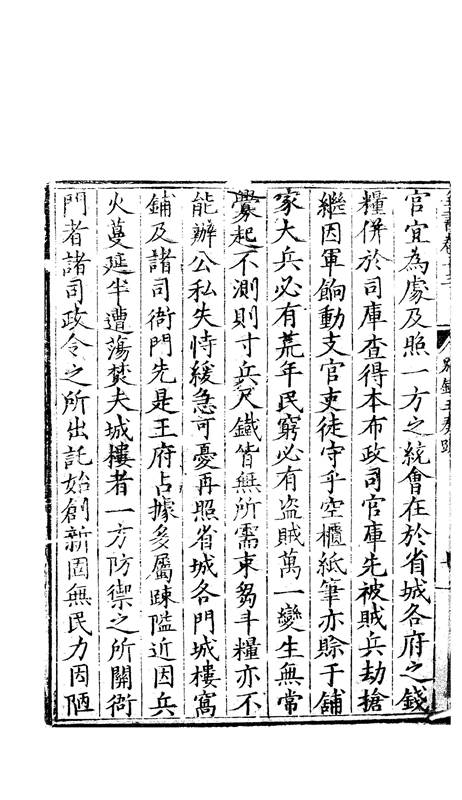 官宜為處及照一方之統會在於省城各府之錢
糧併於司庫查得本布政司官庫先被賊兵劫搶
繼因軍餉動支官吏徒守乎空櫃紙筆亦賒于舖
家大兵必有荒年民窮必有盜賊萬一變生無常
釁起不測則寸兵尺鐵皆無所需束芻斗糧亦不
能辦公私失恃緩急可憂再照省城各門城樓窩
鋪及諸司衙門先是王府占據多屬踈隘近因兵
火蔓延半遭蕩焚夫城樓者一方防禦之所關衙
門者諸司政令之所出託始創新固無民力因陋